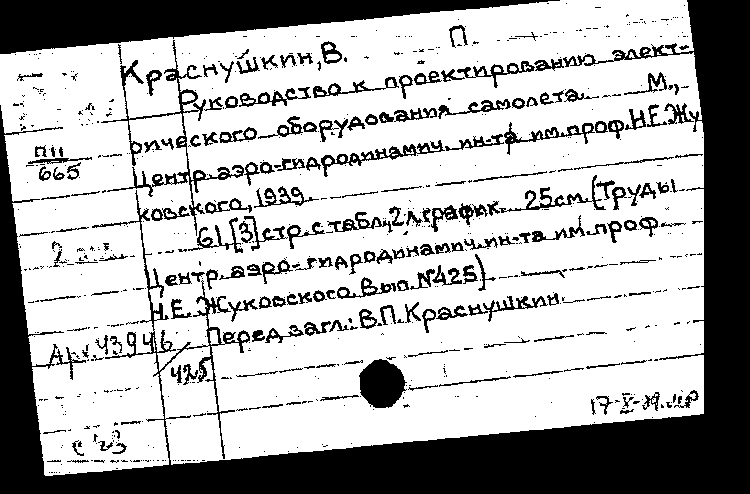 Краснушкин, В. П.
Руководство к проектированию элект-
рического оборудования самолета. М.,
Центр. аэро-гидродинамич. ин-та им. проф. Н.Е. Жу
ковского, 1939.
П11
665
61, [3] стр. с табл., 2 л. график. 25 см. (Труды
2
Центр. аэро-гидродинамич. ин-та им. проф.
Н.Е. Жуковского. Вып. №425).
Перед загл.: В.П. Краснушкин.
43946
425
17-X-79.
с 23